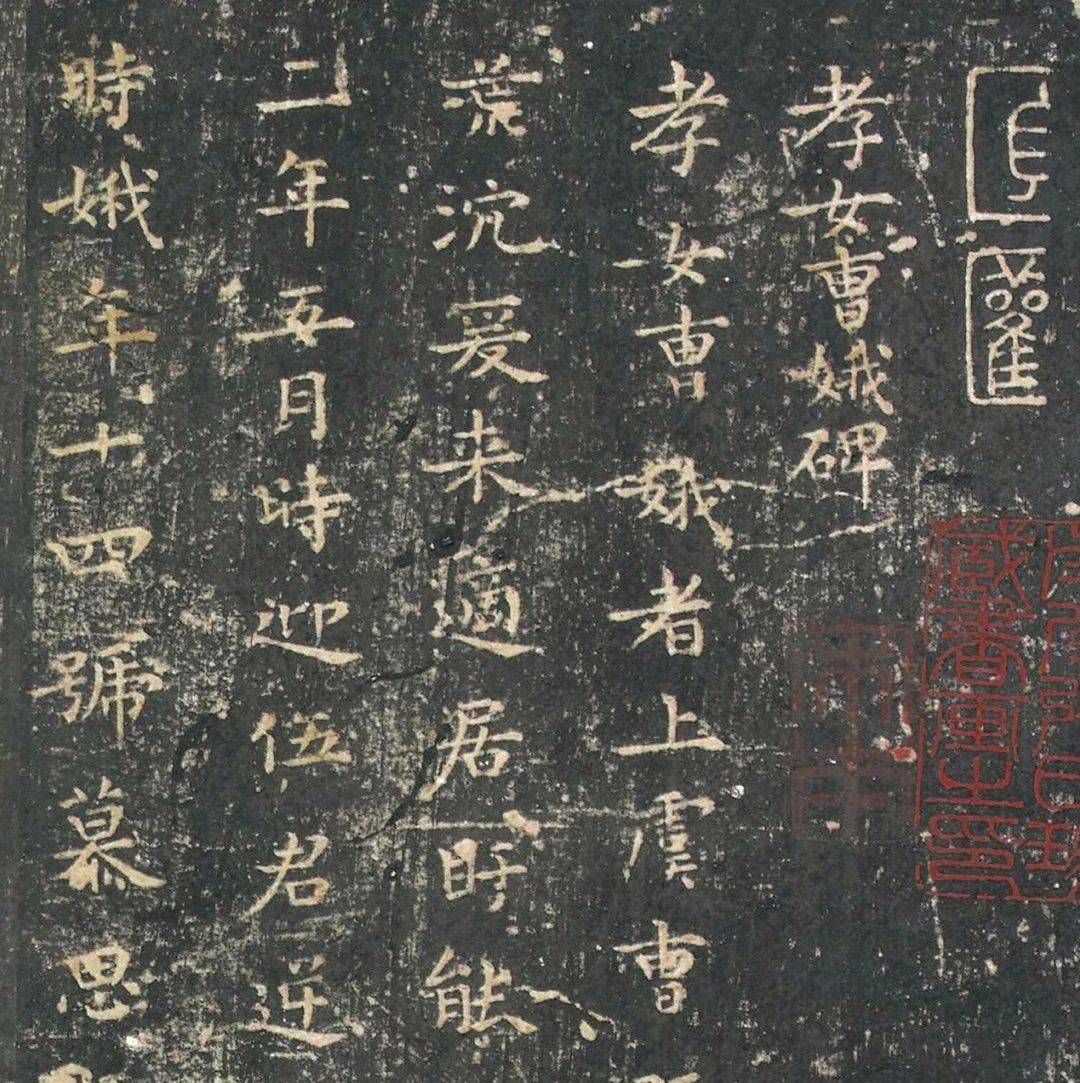 孝女曹娥碑
孝女曹娥者上虞曹
荒沉爰来適居盱能
二年五月時迎伍君逆
時娥年十四號慕思